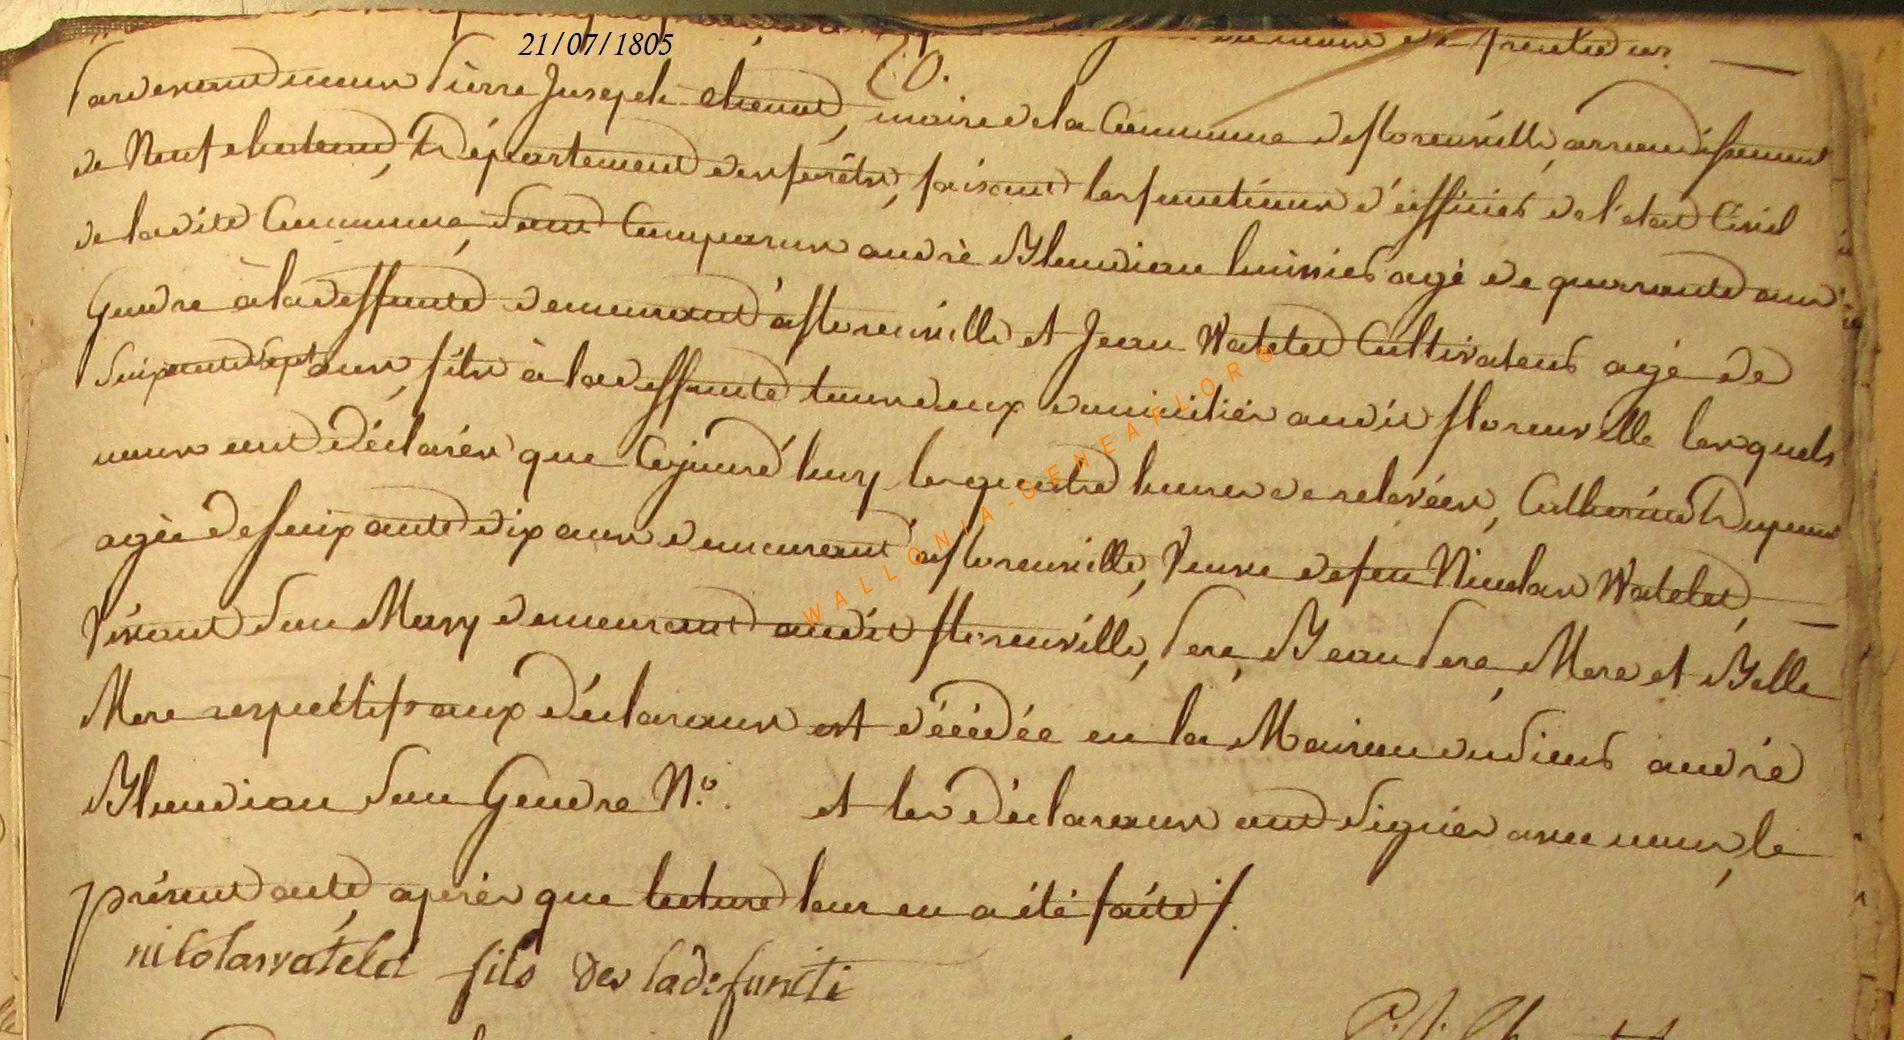 21/07/1805
Pardevant nous Pierre Joseph chenot, maire de la Commune de florenville, arrondissement
de Neufchateau, Département des forêts, faisant les fonctions d'officier de l'etat Civil
de la dite Commune, sont Comparus andré Blondiau huissier agé de quarrante ans
Gendre à la deffunte demeurant à florenville et Jean Watelet Cultivateur agé de
soixante sept ans, fils à la deffunte tous deux domicilier audit florenville lesquels
nous ont déclarés que Cejourd'huy les quatre heures de relevées, Catherine Dupont
agée de soixante dix ans demeurant à florenville, Veuve de feu Nicolas Watelet,
Vivant son Mary demeurant audit florenville, Pere, Beau Pere, Mere et Belle
Mere respectifs aux déclarans est décédée en la Maison du sieur andré
Blondiau son Gendre N.° et les déclarans ont signés avec nous, le
présent acte, après que lecture leur en a été faite ./.
nicolas watelet fils de la defuncte
WALLONIA-GENEAFLOR©